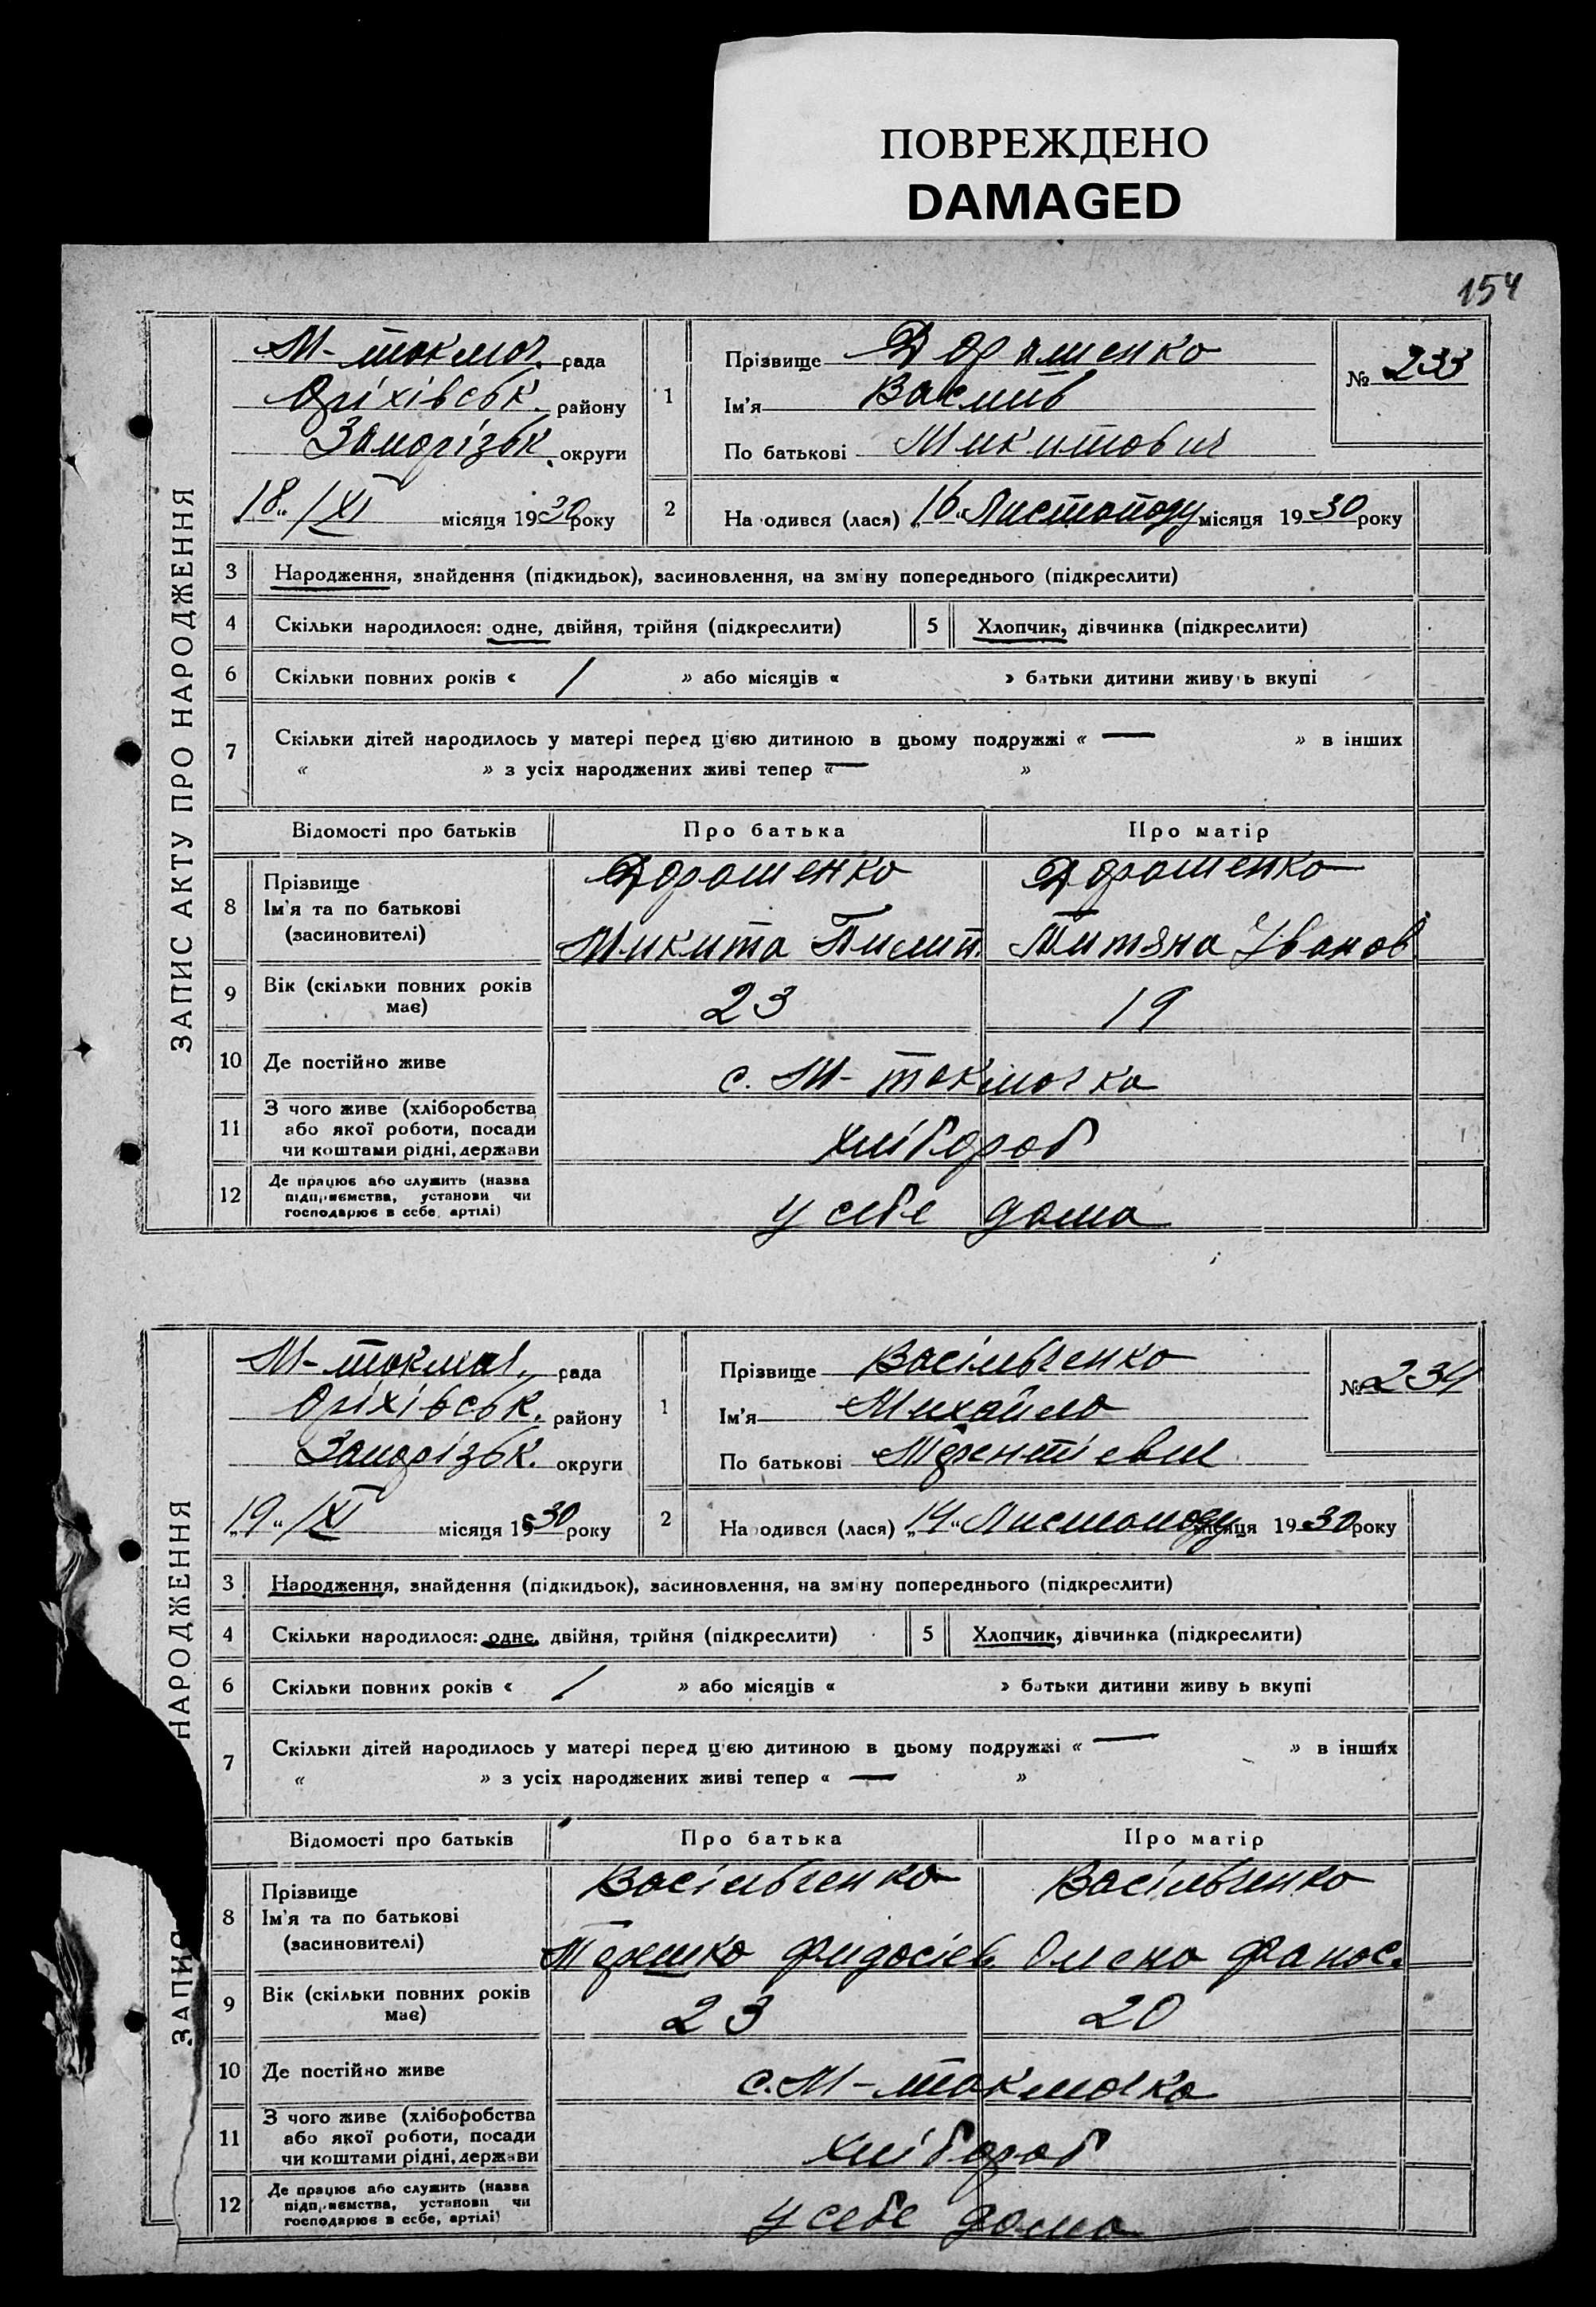 ПОВРЕЖДЕНО
DAMAGED
154
ЗАПИС АКТУ ПРО НАРОДЖЕННЯ
М-токмач. рада
Оріхівськ. району
Запорізьк. округи
„18“ /XI місяця 1930 року
1
Прізвище Дорашенко
Ім'я Василь
По батькові Микитович
№ 233
2
На одився (лася) „16“ Листопаду місяця 1930 року
3 Народження, знайдення (підкидьок), засиновлення, на зміну попереднього (підкреслити)
4 Скільки народилося: одне, двійня, трійня (підкреслити) 5 Хлопчик, дівчинка (підкреслити)
6 Скільки повних років « / » або місяців « » батьки дитини живу ь вкупі
7 Скільки дітей народилось у матері перед цією дитиною в цьому подружжі « — » в інших
« » з усіх народжених живі тепер « — »
Відомості про батьків Про батька Про матір
8 Прізвище
Ім'я та по батькові
(засновителі)
Дорашенко Дорашенко
Микита Пилип. Титяна Іванов.
9 Вік (скільки повних років має) 23 19
10 Де постійно живе с. М-токмачка
11 З чого живе (хліборобства
або якої роботи, посади
чи коштами рідні, держави
хлібороб
12 Де працює або служить (назва
підприємства, установи чи
господарює в себе, артілі)
у себе дома
ЗАПИС НАРОДЖЕННЯ
М-токмач. рада
Оріхівськ. району
Запорізьк. округи
„19“ /XI місяця 1930 року
1
Прізвище Васільченко
Ім'я Михайло
По батькові Терентієвич
№ 234
2
На одився (лася) „14“ Листопаду місяця 1930 року
3 Народження, знайдення (підкидьок), засиновлення, на зміну попереднього (підкреслити)
4 Скільки народилося: одне, двійня, трійня (підкреслити) 5 Хлопчик, дівчинка (підкреслити)
6 Скільки повних років « / » або місяців « » батьки дитини живу ь вкупі
7 Скільки дітей народилось у матері перед цією дитиною в цьому подружжі « — » в інших
« » з усіх народжених живі тепер « — »
Відомості про батьків Про батька Про матір
8 Прізвище
Ім'я та по батькові
(засиновителі)
Васільченко Васільченко
Терешко Фидосіев. Олена Фанас.
9 Вік (скільки повних років має) 23 20
10 Де постійно живе с. М-токмачка
11 З чого живе (хліборобства
або якої роботи, посади
чи коштами рідні, держави
хлібороб
12 Де працює або служить (назва
підприємства, установи чи
господарює в себе, артілі)
у себе дома